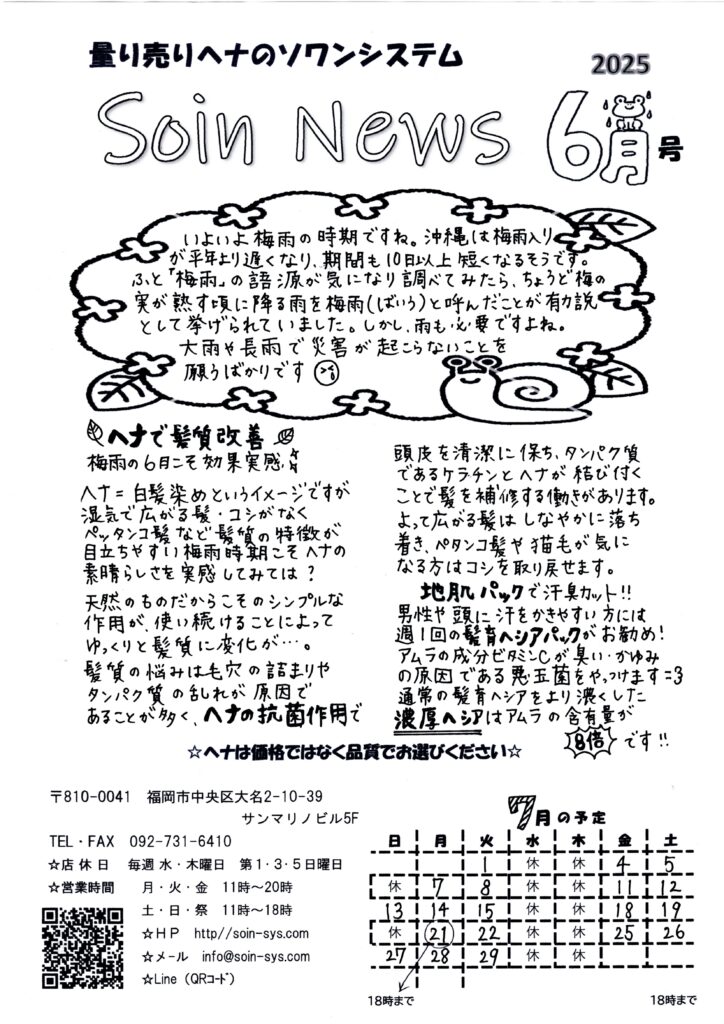 量り売りヘナのソワンシステム
2025
Soin News 6月号
いよいよ梅雨の時期ですね。沖縄は梅雨入り
が平年より遅くなり、期間も10日以上短くなるそうです。
ふと「梅雨」の語源が気になり調べてみたら、ちょうど梅の
実が熟す頃に降る雨を梅雨(ばいう)と呼んだことが有力説
として挙げられていました。しかし、雨も必要ですよね。
大雨や長雨で災害が起こらないことを
願うばかりです
ヘナで髪質改善
梅雨の6月こそ効果実感☆
ヘナ=白髪染めというイメージですが
湿気で広がる髪・コシがなく
ペッタンコ髪など髪質の特徴が
目立ちやすい梅雨時期こそヘナの
素晴らしさを実感してみては?
天然のものだからこそのシンプルな
作用が、使い続けることによって
ゆっくりと髪質に変化が…。
髪質の悩みは毛穴の詰まりや
タンパク質の乱れが原因で
あることが多く、ヘナの抗菌作用で
頭皮を清潔に保ち、タンパク質
であるケラチンとヘナが結び付く
ことで髪を補修する働きがあります。
よって広がる髪はしなやかに落ち
着き、ペタンコ髪や猫毛が気に
なる方はコシを取り戻せます。
地肌パックで汗臭カット!!
男性や頭に汗をかきやすい方には
週1回の髪育ヘシアパックがお勧め!
アムラの成分ビタミンCが臭い・かゆみ
の原因である悪玉菌をやっつけます=3
通常の髪育ヘシアをより濃くした
濃厚ヘシアはアムラの含有量が
8倍です!!
☆ヘナは価格ではなく品質でお選びください☆
〒810-0041 福岡市中央区大名2-10-39
サンマリノビル5F
TEL・FAX 092-731-6410
☆店休日 毎週水・木曜日 第1・3・5日曜日
☆営業時間 月・火・金 11時～20時
土・日・祭 11時～18時
☆HP http//soin-sys.com
☆メール info@soin-sys.com
☆Line (QRコード)
7月の予定
日 月 火 水 木 金 土
1 休 休 4 5
休 7 8 休 休 11 12
13 14 15 休 休 18 19
休 21 22 休 休 25 26
27 28 29 休 休
18時まで
18時まで